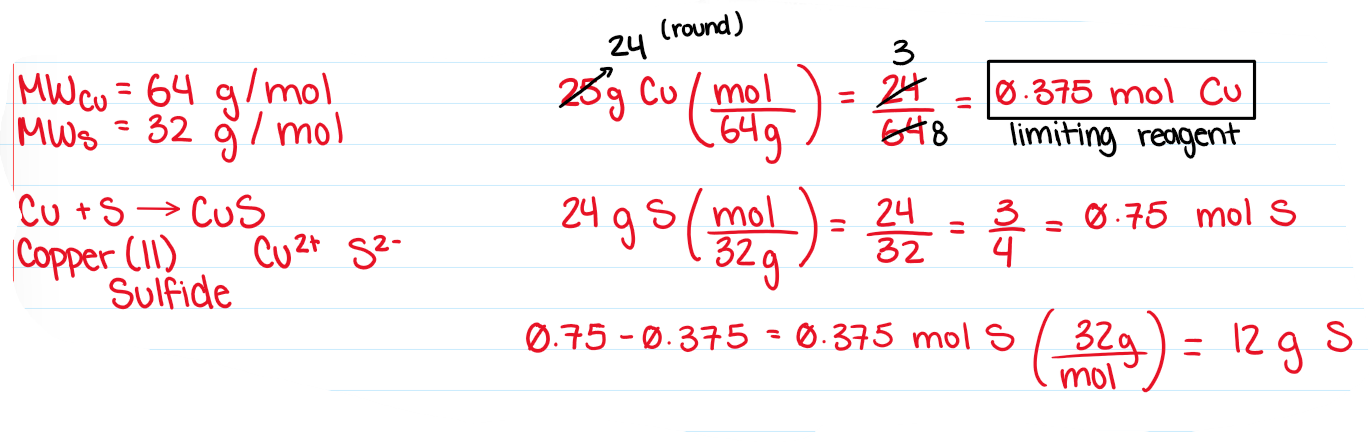 MW Cu = 64 g/mol
MW S = 32 g/mol
Cu + S → CuS
Copper (II) Cu²⁺ S²⁻
Sulfide
24 (round)
25g Cu (mol/64g) = 24/64 = 0.375 mol Cu
3
8
limiting reagent
24 g S (mol/32g) = 24/32 = 3/4 = 0.75 mol S
0.75 - 0.375 = 0.375 mol S (32g/mol) = 12 g S